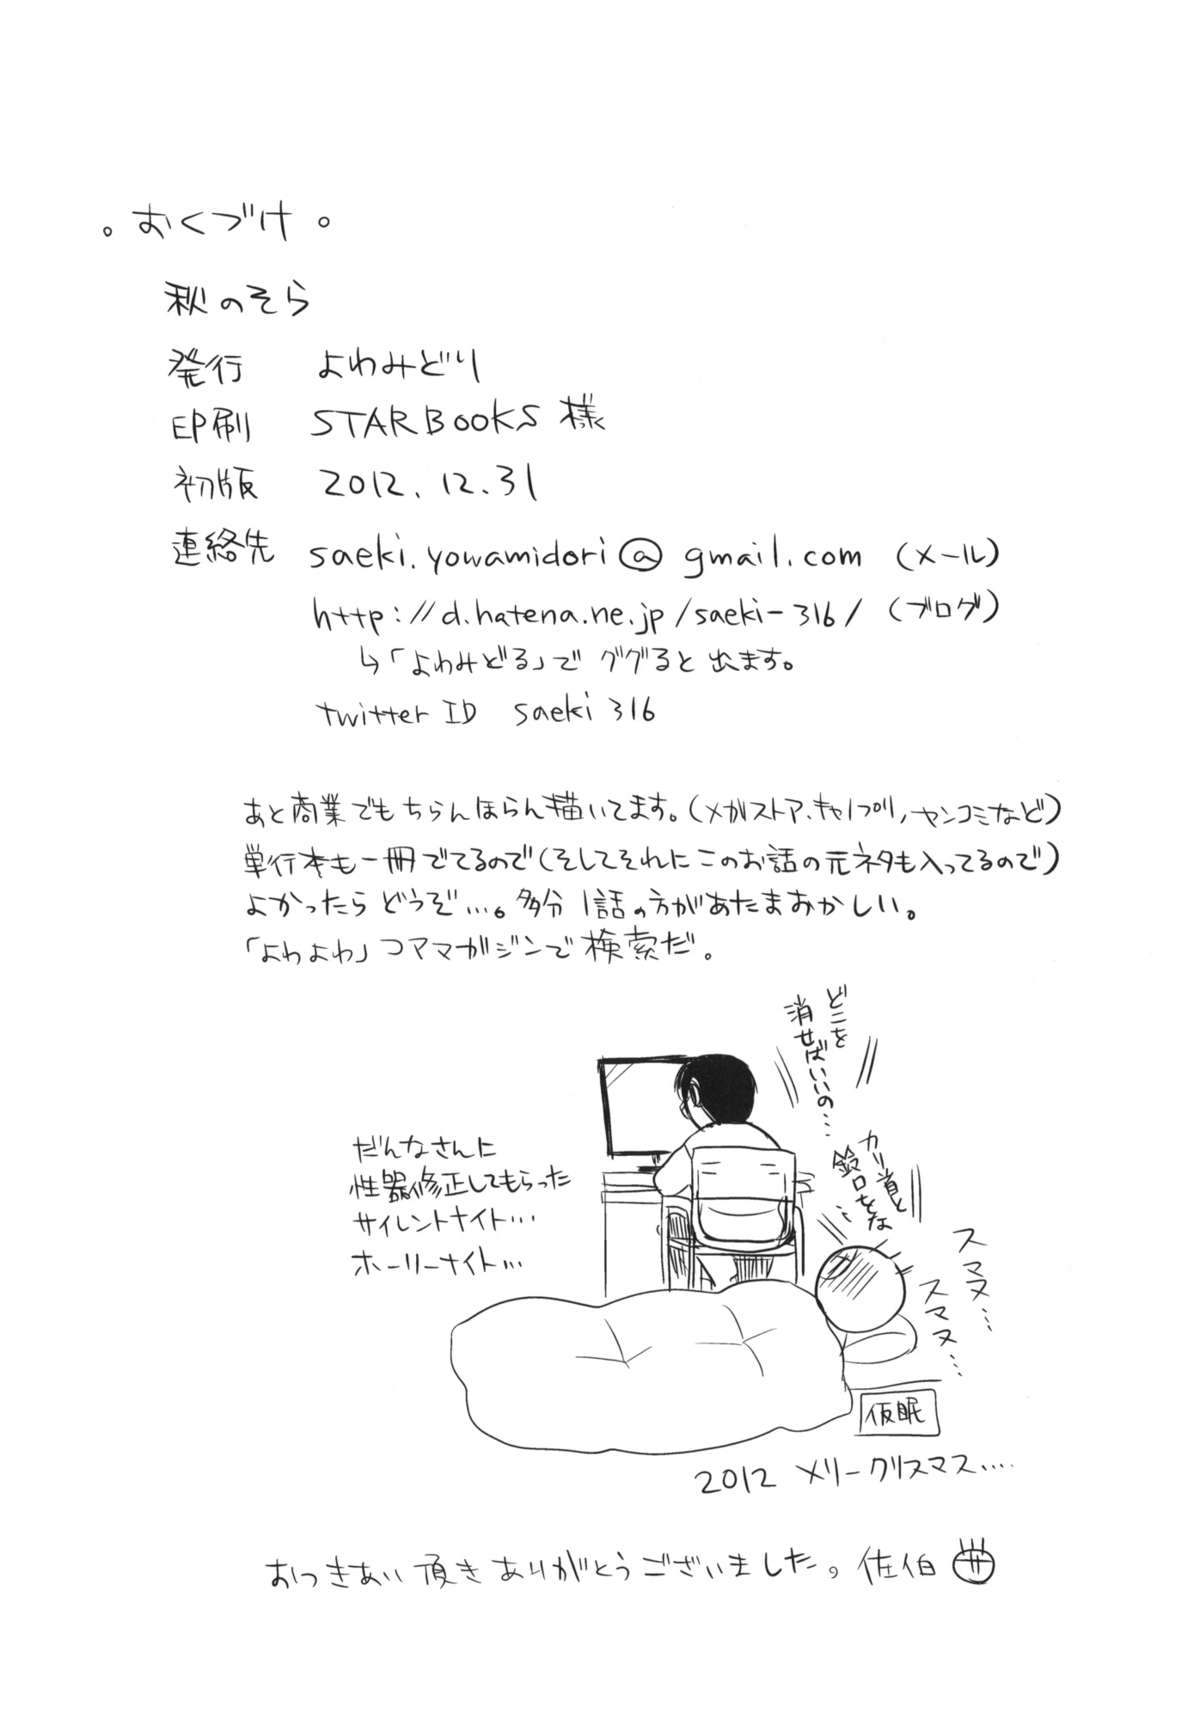 。おくづけ。
秋のそら
発行 よわみどり
印刷 STARBOOKS 様
初版 2012.12.31
連絡先 saeki.yowamidori@gmail.com (メール)
http://d.hatena.ne.jp/saeki-316/ (ブログ)
↳「よわみどる」で ググると出ます。
twitter ID saeki316
あと商業でもちらんほらん描いてます。(メガストア、キャノプリ、ヤンコミなど)
単行本も一冊でてるので(そしてそれにこのお話の元ネタも入ってるので)
よかったらどうぞ…。多分1話の方があたまおかしい。
「よわよわ」つアマガジンで検索だ。
どこを
消せばいいの…
カリ首と
鈴口をな…
だんなさんに
性器修正してもらった
サイレントナイト…
ホーリーナイト…
スマヌ…
スマヌ…
仮眠
2012 メリークリスマス….
おつきあい頂きありがとうございました。佐伯 サ